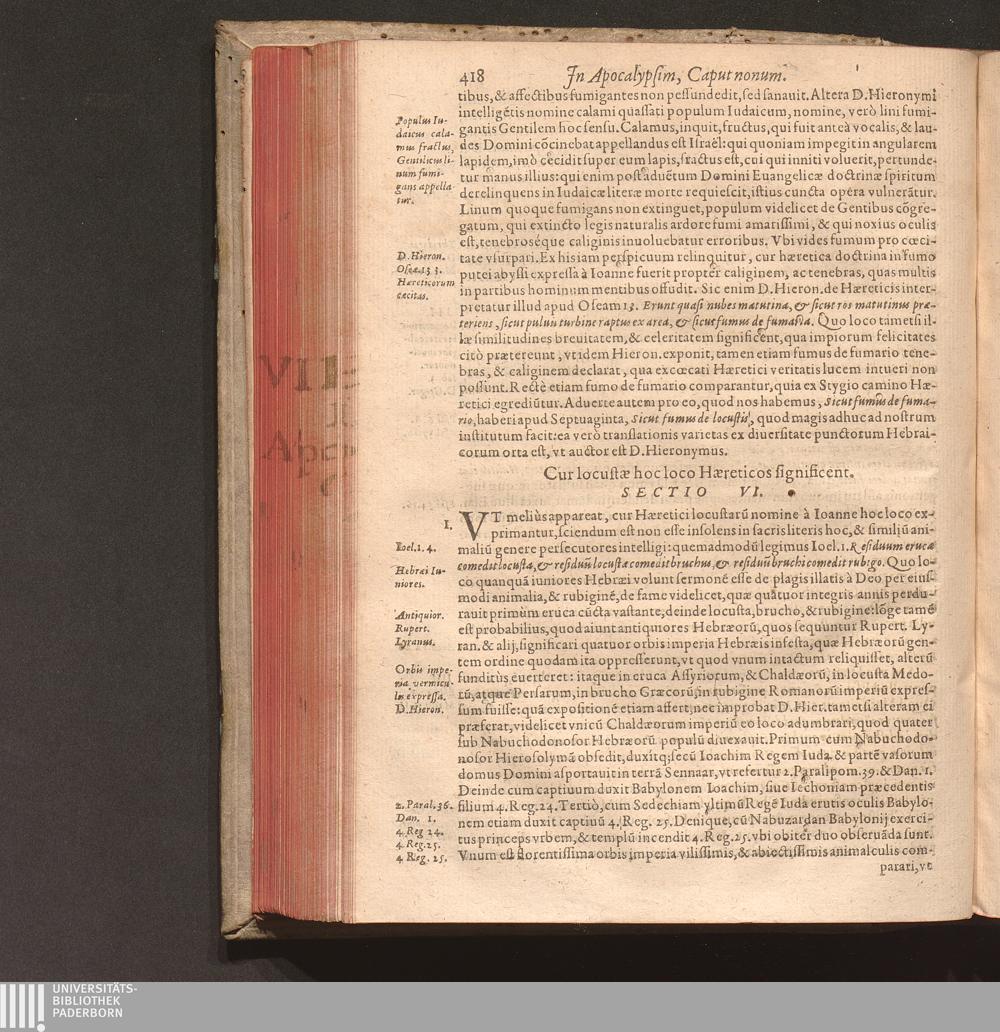 418 In Apocalypſim, Caput nonum.
tibus, & affectibus fumigantes non peſſundedit, ſed ſanauit. Altera D. Hieronymi
intelligẽtis nomine calami quaſſati populum Iudaicum, nomine, verò lini fumi-
gantis Gentilem hoc ſenſu. Calamus, inquit, fructus, qui fuit anteà vocalis, & lau-
des Domini cõcinebat appellandus eſt Iſraël: qui quoniam impegit in angularem
lapidem, imò cecidit ſuper eum lapis, fractus eſt, cui qui inniti voluerit, pertunde-
tur manus illius: qui enim poſt aduẽtum Domini Euangelicæ doctrinæ ſpiritum
derelinquens in Iudaicæ literæ morte requieſcit, iſtius cuncta opera vulnerãtur.
Linum quoque fumigans non extinguet, populum videlicet de Gentibus cõgre-
gatum, qui extincto legis naturalis ardore fumi amariſſimi, & qui noxius oculis
eſt, tenebroſéque caliginis inuoluebatur erroribus. Vbi vides fumum pro cœci-
tate vſurpari. Ex his iam perſpicuum relinquitur, cur hæretica doctrina in fumo
putei abyſſi expreſſa à Ioanne fuerit propter caliginem, ac tenebras, quas multis
in partibus hominum mentibus offudit. Sic enim D. Hieron. de Hæreticis inter-
pretatur illud apud Oſeam 13. Erunt quaſi nubes matutina, & ſicut ros matutinus præ-
teriens, ſicut puluis turbine raptus ex area, & ſicut fumus de fumario. Quo loco tametſi il-
læ ſimilitudines breuitatem, & celeritatem ſignificent, qua impiorum felicitates
citò prætereunt, vt idem Hieron. exponit, tamen etiam fumus de fumario tene-
bras, & caliginem declarat, qua excœcati Hæretici veritatis lucem intueri non
poſſunt. Rectè etiam fumo de fumario comparantur, quia ex Stygio camino Hæ-
retici egrediũtur. Aduerte autem pro eo, quod nos habemus, Sicut fumus de fuma-
rio, haberi apud Septuaginta, Sicut fumus de locuſtis, quod magis adhuc ad noſtrum
inſtitutum facit: ea verò tranſlationis varietas ex diuerſitate punctorum Hebrai-
corum orta eſt, vt auctor eſt D. Hieronymus.
Populus Iu-
daicus cala-
mus fractus,
Gentilicus li-
num fumi-
gans appella-
tur.
D. Hieron.
Oſeæ. 13 3.
Hæreticorum
cæcitas.
Cur locuſtæ hoc loco Hæreticos ſignificent.
SECTIO VI.
VT meliùs appareat, cur Hæretici locuſtarũ nomine à Ioanne hoc loco ex-
primantur, ſciendum eſt non eſſe inſolens in ſacris literis hoc, & ſimiliũ ani-
maliũ genere perſecutores intelligi: quemadmodũ legimus Ioel. 1. Reſiduum erucæ
comedit locuſta, & reſiduũ locuſtæ comedit bruchus, & reſiduũ bruchi comedit rubigo. Quo lo-
co quanquã iuniores Hebræi volunt ſermonẽ eſſe de plagis illatis à Deo per eiuſ-
modi animalia, & rubiginẽ, de fame videlicet, quæ quatuor integris annis perdu-
rauit primùm eruca cũcta vaſtante, deinde locuſta, brucho, & rubigine: lõge tamẽ
eſt probabilius, quod aiunt antiquiores Hebræorũ, quos ſequuntur Rupert. Ly-
ran. & alij, ſignificari quatuor orbis imperia Hebræis infeſta, quæ Hebræorũ gen-
tem ordine quodam ita oppreſſerunt, vt quod vnum intactum reliquiſſet, alterũ
funditùs euerteret: itaque in eruca Aſſyriorum, & Chaldæorũ, in locuſta Medo-
rũ, atque Perſarum, in brucho Græcorũ, in rubigine Romanorũ imperiũ expreſ-
ſum fuiſſe: quã expoſitionẽ etiam affert, nec improbat D. Hier. tametſi alteram ei
præferat, videlicet vnicũ Chaldæorum imperiũ eo loco adumbrari, quod quater
ſub Nabuchodonoſor Hebræorũ populũ diuexauit. Primum cum Nabuchodo-
noſor Hieroſolymã obſedit, duxitq; ſecũ Ioachim Regem Iuda & partẽ vaſorum
domus Domini aſportauit in terrã Sennaar, vt refertur 2. Paralipom. 39. & Dan. 1.
Deinde cum captiuum duxit Babylonem Ioachim, ſiue Iechoniam præcedentis
filium 4. Reg. 24. Tertiò, cum Sedechiam vltimũ Regẽ Iuda erutis oculis Babylo-
nem etiam duxit captiuũ 4. Reg. 25. Denique, cũ Nabuzardan Babylonij exerci-
tus princeps vrbem, & templũ incendit 4. Reg. 25. vbi obiter duo obſeruãda ſunt.
Vnum eſt florentiſſima orbis imperia viliſſimis, & abiectiſſimis animalculis com-
parari, vt
I.
Ioel. 1. 4.
Hebræi Iu-
niores.
Antiquior.
Rupert.
Lyranus.
Orbis impe-
ria vermicu-
lis expreſſa.
D. Hieron.
2. Paral. 36.
Dan. 1.
4. Reg 24.
4. Reg. 25.
4 Reg. 25.
UNIVERSITÄTS-
BIBLIOTHEK
PADERBORN